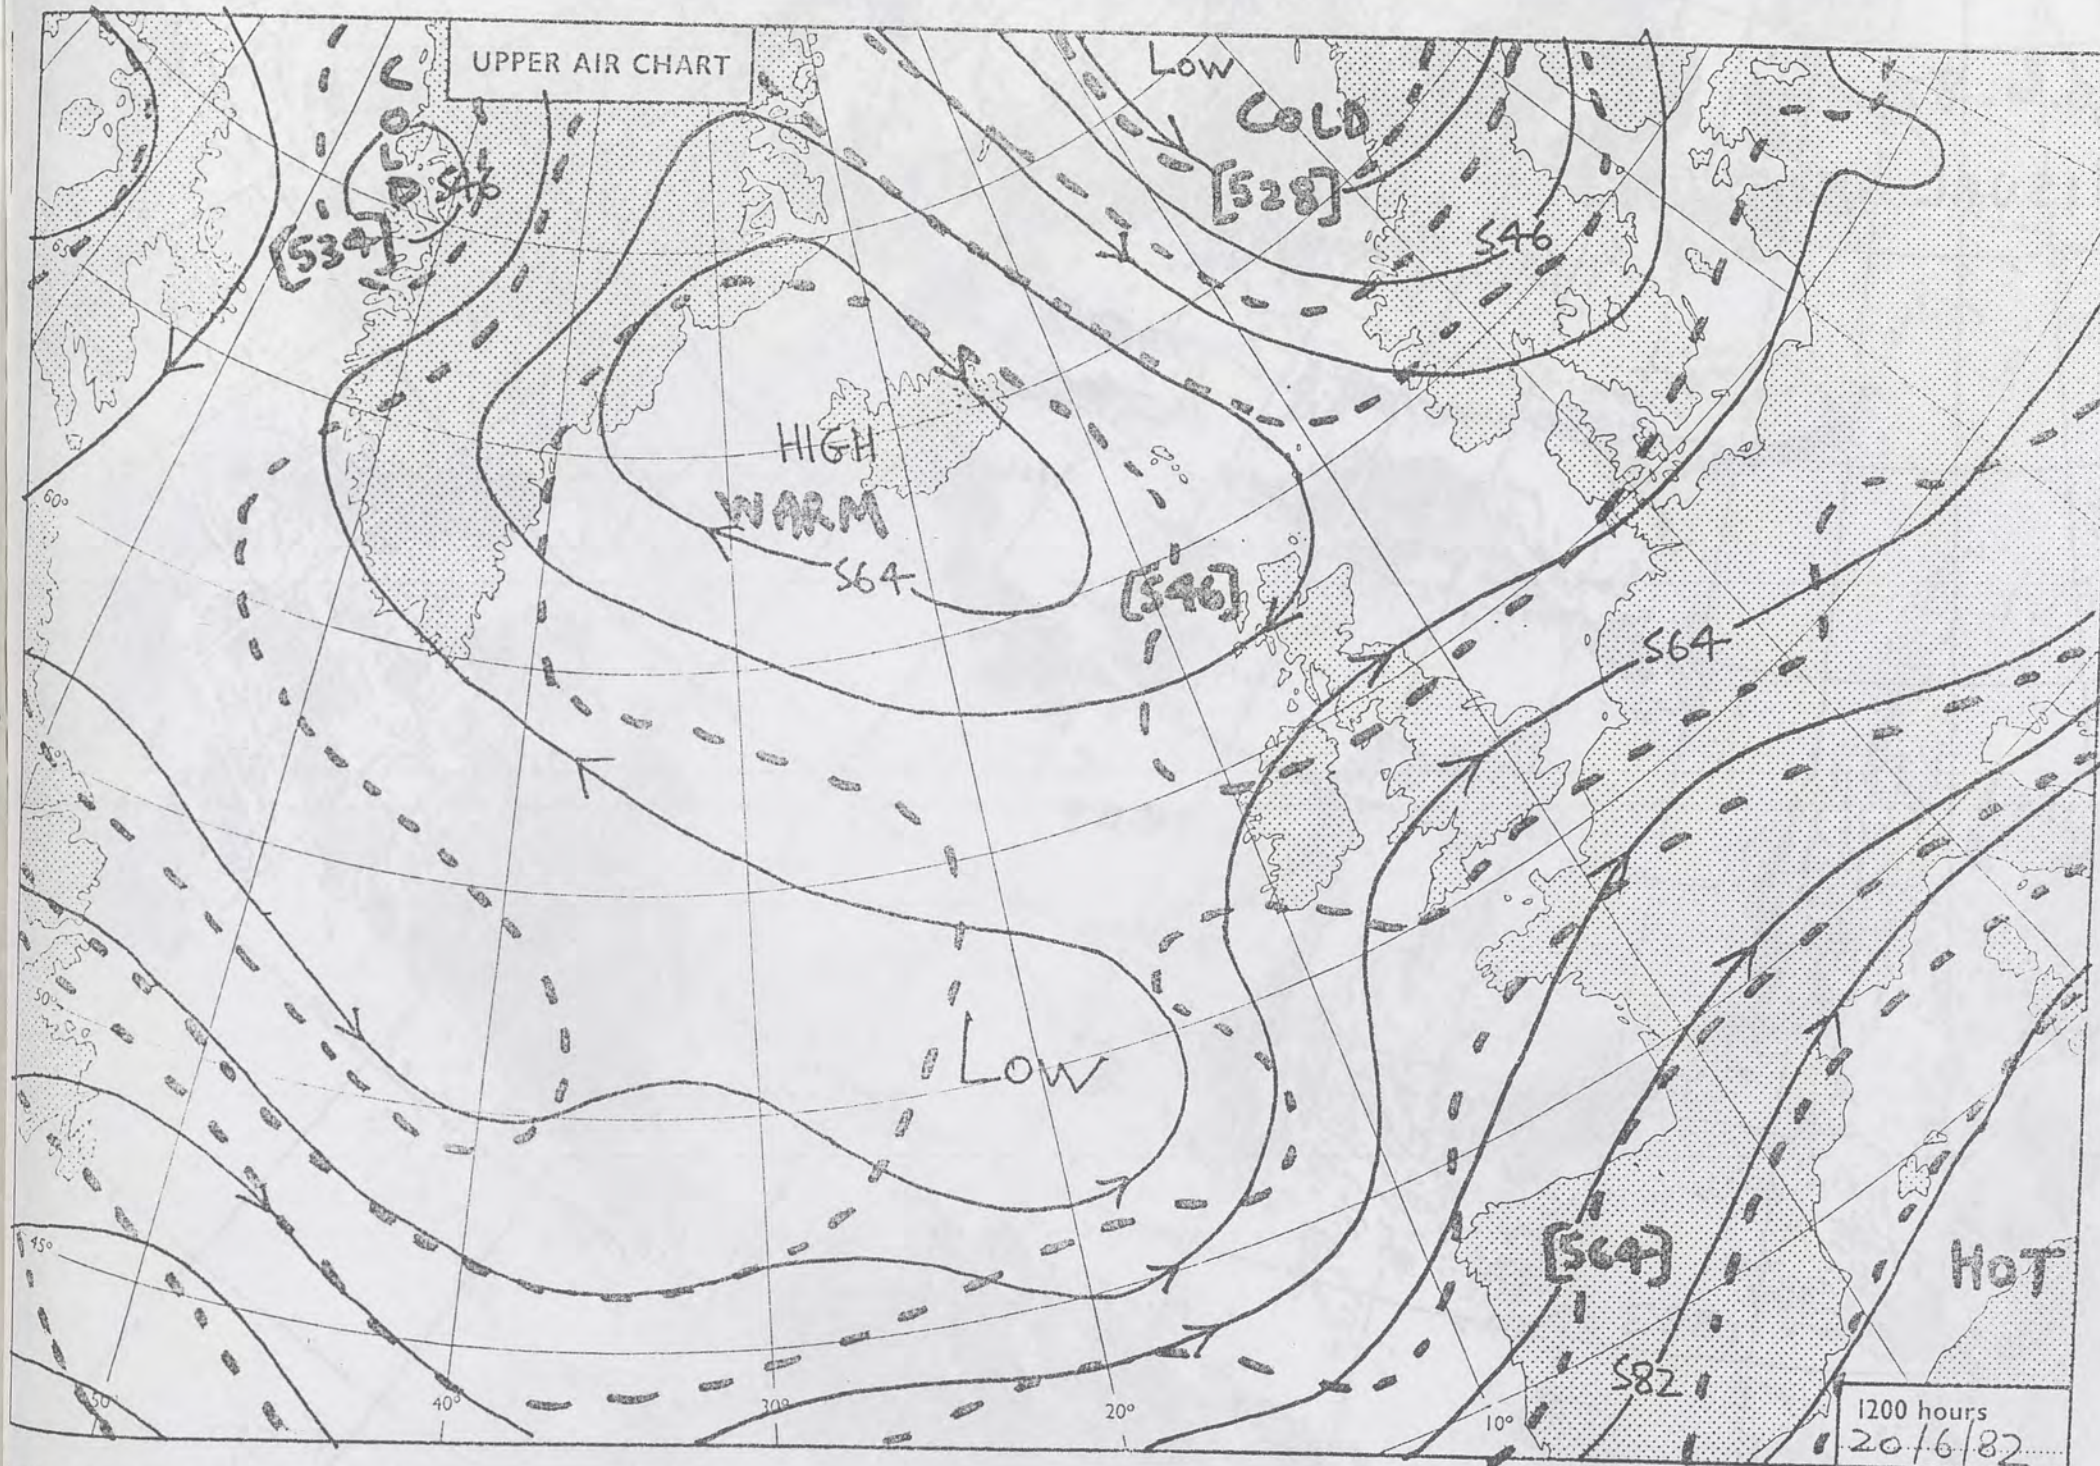 UPPER AIR CHART
COLD
546
[534]
Low
COLD
[528]
546
HIGH
WARM
564
[546]
564
60°
55°
50°
45°
Low
[564]
HOT
582
50
40°
30°
20°
10°
1200 hours
20/6/82